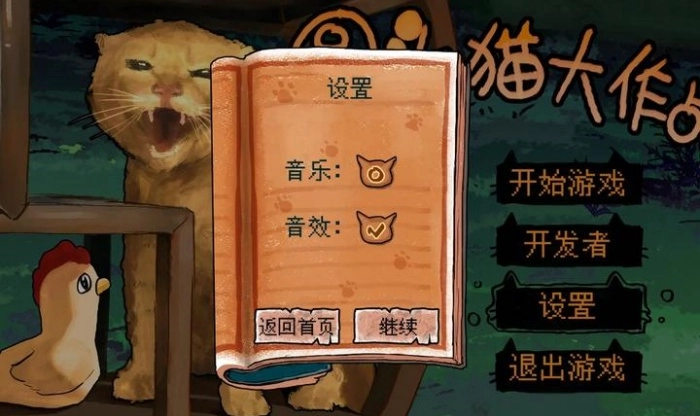 猫大作
设置
音乐：
音效：
返回首页
继续
开始游戏
开发者
设置
退出游戏